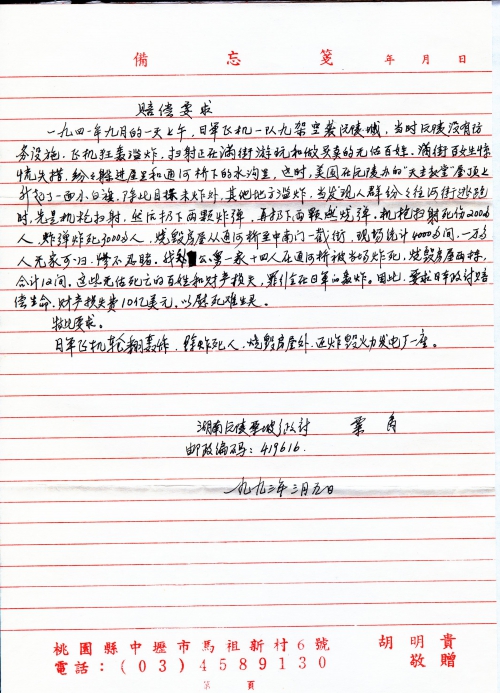 備 忘 箋 年 月 日
赔偿要求
一九四一年九月的一天上午，日军飞机一队九架空袭沅陵城，当时沅陵没有防
务设施。飞机狂轰滥炸，扫射正在满街游玩和做买卖的无估百姓。满街百姓惊
慌失措，纷纷躲进屋里和通河桥下的水沟里，这时，美国在沅陵办的"天主教堂"屋顶上
升起了一面小白旗，除此目标未炸外，其他地方滥炸，当发现人群纷纷往河街排跑
时，先是机枪扫射，然后扔下两颗炸弹，再扔下两颗燃烧弹。机枪扫射死伤2000多
人，炸弹炸死3000多人，烧毁房屋从通河桥至中南门一截街，现场统计4000多间，一万多
人无家可归，惨不忍睹。我 公 一家十四人在通河桥被当场炸死，烧毁房屋两栋，
合计12间。这些无估死亡的百姓和财产损失，罪行全在日军的轰炸。因此，要求日军政讨赔
偿生命、财产损失费10亿美元，以慰死难生灵。
特此要求。
日军飞机轮翻轰炸，除炸死人，烧毁房屋外，还炸毁火力发电厂一座。
湖南沅陵 坡 村
邮政编码：419616.
一九九三年三月五日
桃園縣中壢市馬祖新村6號 胡明貴
電話：(03)4589130 敬贈
第 頁